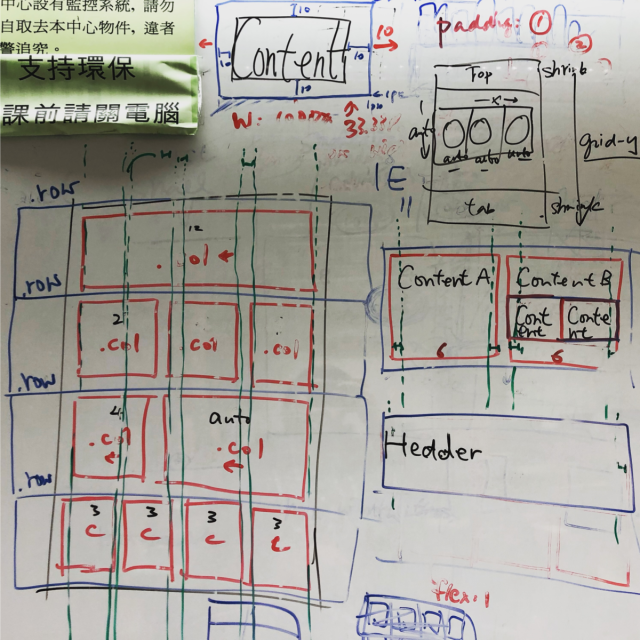 中心設有監控系統，請勿
自取去本中心物件，違者
警追究。
支持環保
課前請關電腦
10
10
Content
10
10
10
W:
33.33
padding: ①
②
Top
shrink
x
auto
auto
auto
auto
grid-y
tab
shrink
IE
.row
12
.col
.row
2
.col
.col
.col
.row
4
.col
auto
.col
.row
3
c
3
c
3
c
3
c
Content A
Content B
Cont
ent
Conte
nt
6
6
Hedder
flex:1